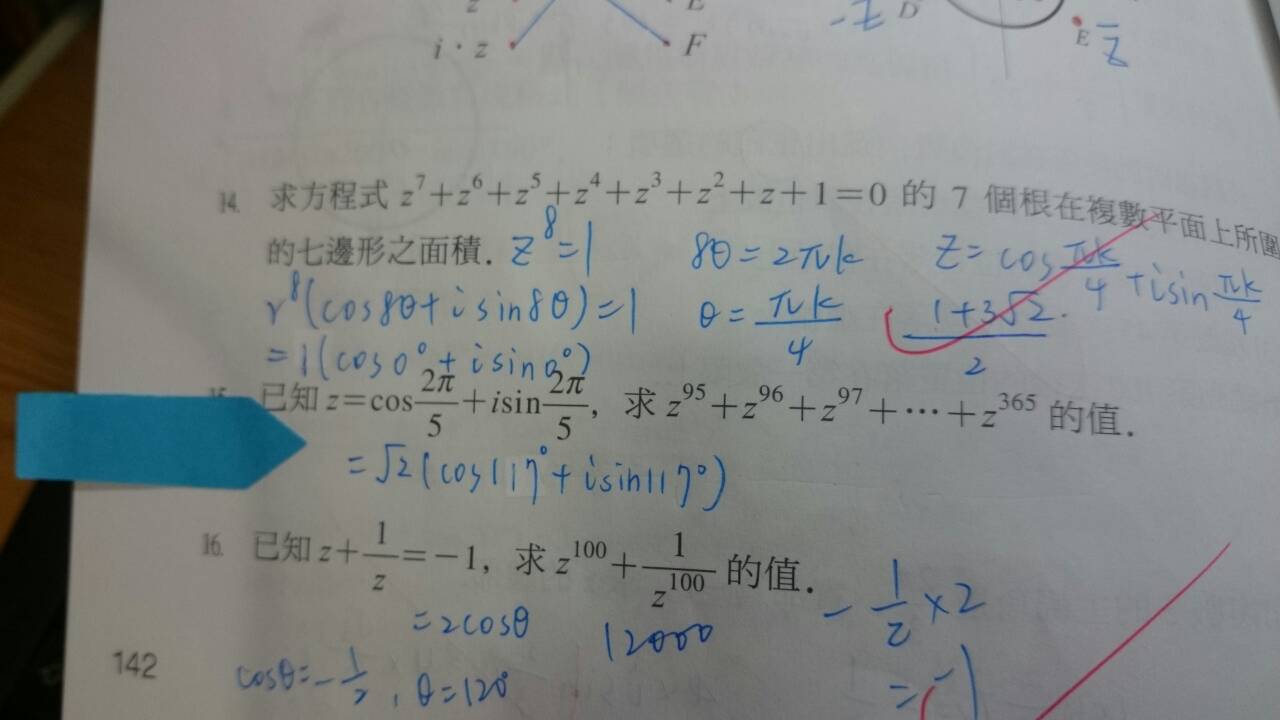 z
E
i · z
F
-z
D
E
z̄
14. 求方程式 z⁷+z⁶+z⁵+z⁴+z³+z²+z+1=0 的 7 個根在複數平面上所圍
的七邊形之面積. z⁸=1
8θ=2πk
z=cos πk/4 + i sin πk/4
r⁸(cos8θ+i sin8θ)=1
θ=πk/4
(1+3√2)/2.
=1(cos0°+i sin0°)
15. 已知 z=cos 2π/5 + i sin 2π/5, 求 z⁹⁵+z⁹⁶+z⁹⁷+⋯+z³⁶⁵ 的值.
=√2(cos117°+i sin117°)
16. 已知 z+1/z=-1, 求 z¹⁰⁰+1/z¹⁰⁰ 的值.
=2cosθ
12000
-1/2×2
=-1
cosθ=-1/2, θ=120°
142